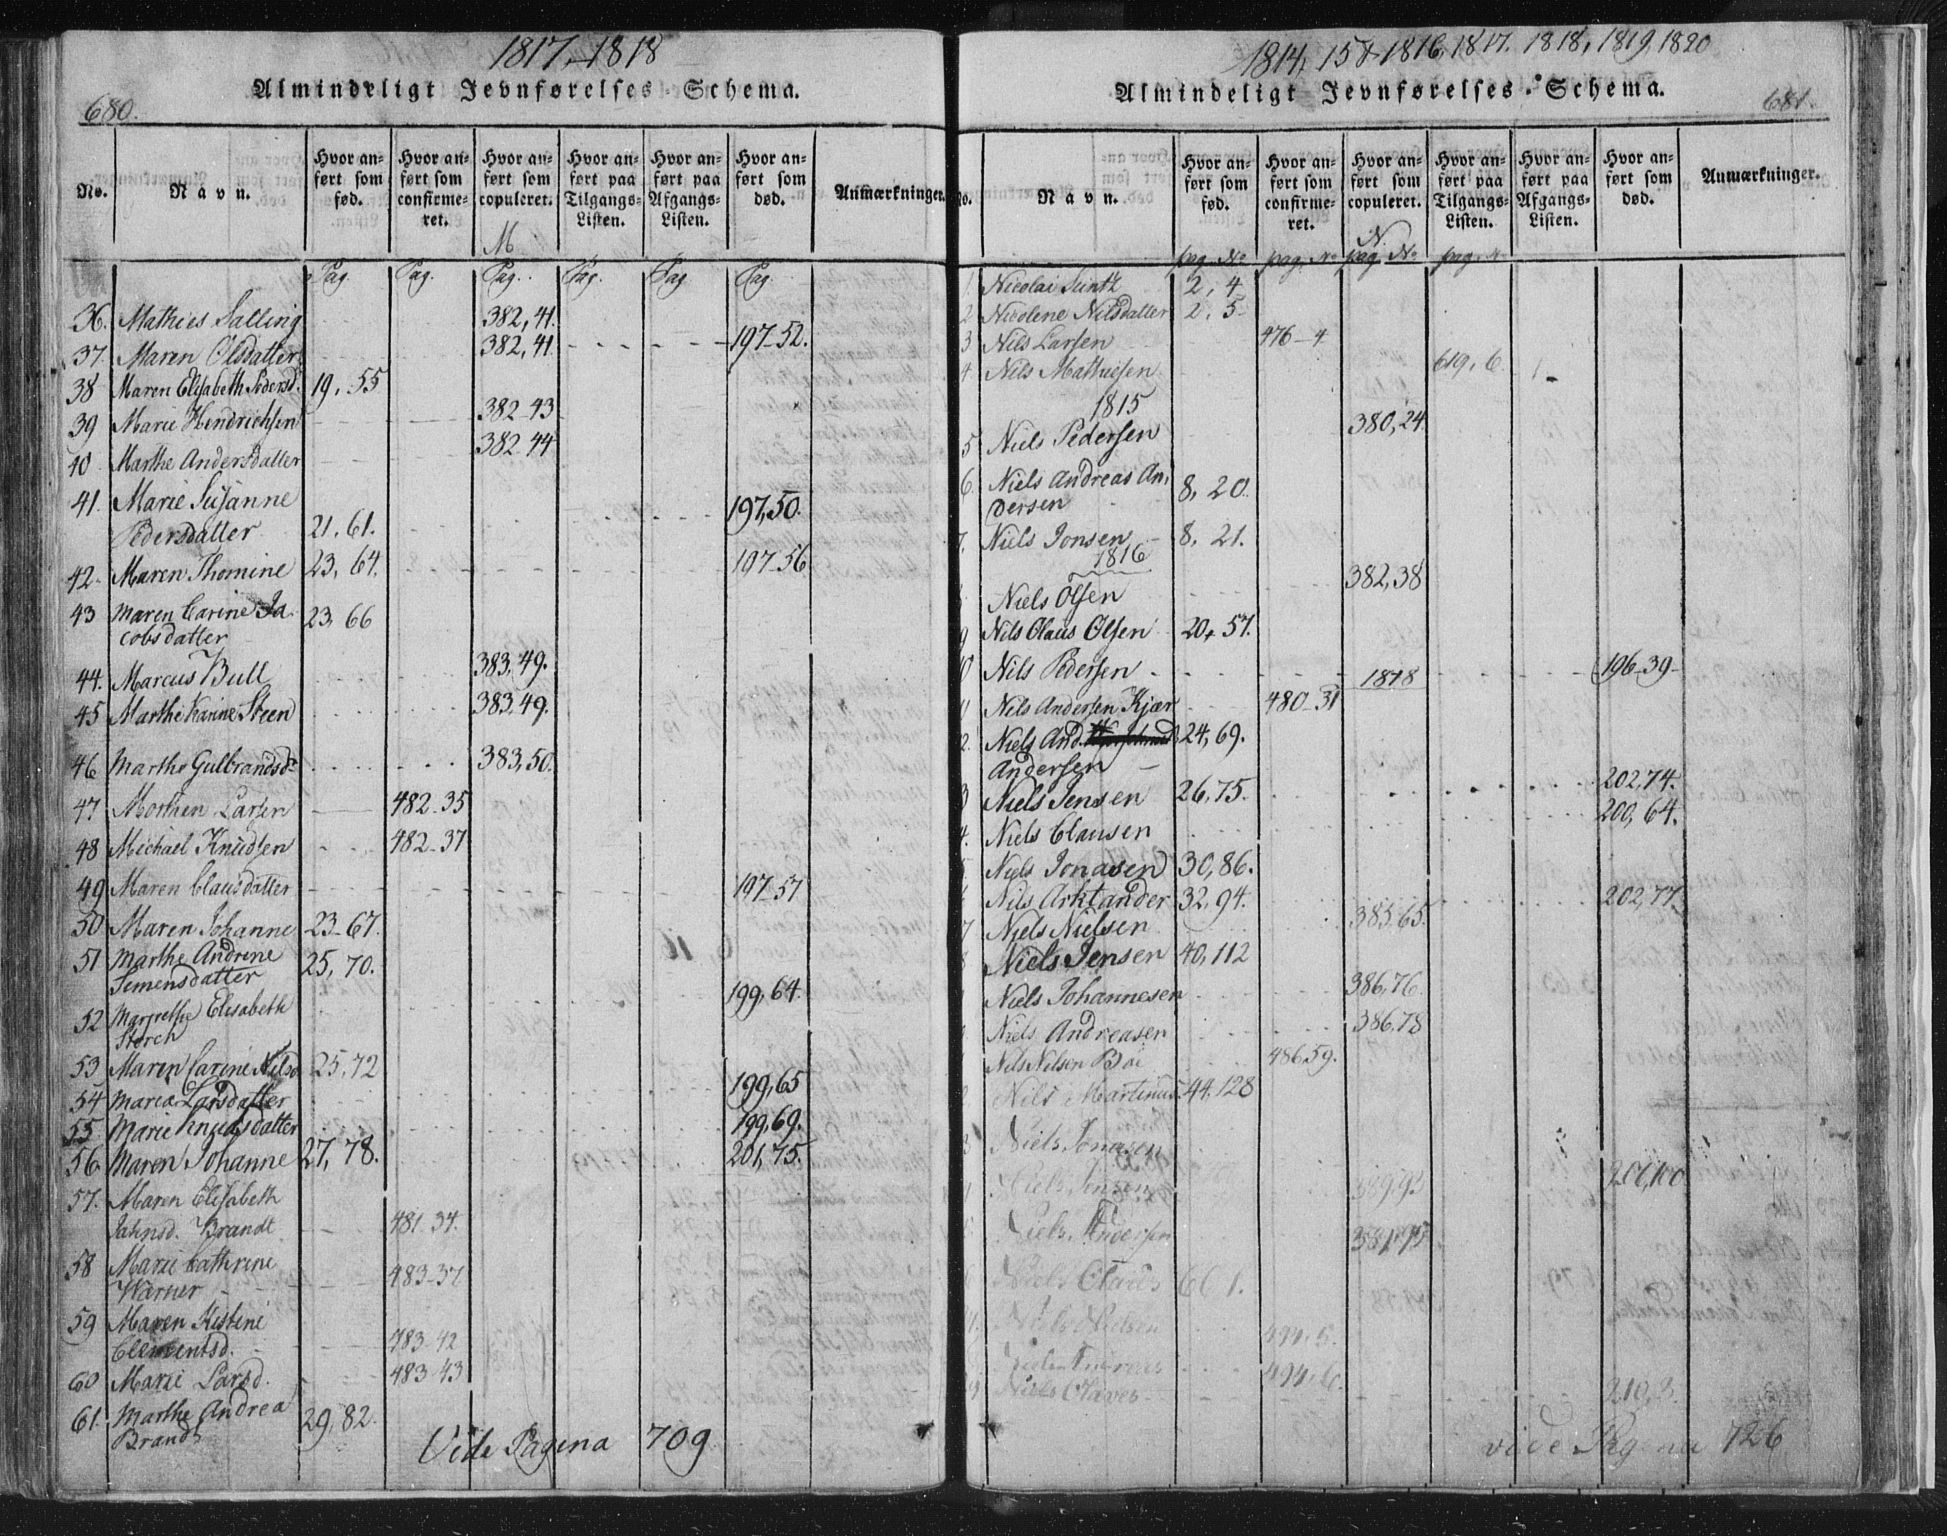 1817, 1818
Almindeligt Jevnførelses-Schema.
680.
No. Navn. Hvor anført som fød. Hvor anført som confirmeret. Hvor anført som copuleret. Hvor anført paa Tilgangs-Listen. Hvor anført paa Afgangs-Listen. Hvor anført som død. Anmærkninger.
M
Pag. Pag. Pag. Pag. Pag Pag.
36. Mathies Salling 382, 41.
37. Maren Olsdatter 382, 41 197-52.
38 Maren Elisabeth Pedersd. 19, 55
39 Marie Hendrichsen 382-43
40 Marthe Andersdatter 382-44
41. Marie Susanne
Pedersdatter 21, 61. 197, 50.
42. Maren Thomine 23, 64. 197-56
43 Maren Carine Ja
cobsdatter 23, 66
44. Marcus Bull 383, 49.
45 Marthe Karine Steen 383, 49.
46 Marthe Gulbrandsdr 383, 50.
47 Morthen Larsen 482-35
48 Michael Knudsen 482-37
49 Maren Clausdatter 197-57
50 Maren Johanne 23-67.
51 Marthe Andrine
Simensdatter 25, 70.
52 Margrethe Elisabeth
Storch 199, 64.
53 Maren Carine Nilsd 25, 72
54 Maria Larsdatter 199, 65
55 Marie Knudsdatter 199, 69.
56 Maren Johanne 27, 78. 201, 75.
57. Maren Elisabeth
Jahnsd. Brandt 481-34.
58 Marie Cathrine
Warner 483-37
59 Maren Kistine
Clementsd. 483-42
60 Marie Larsd. 483-43
61. Marthe Andrea
Brandt 29, 82.
Vide Pagina 709
1814, 15 & 1816, 1817. 1818, 1819, 1820
Almindeligt Jevnførelses-Schema.
681.
No. Navn. Hvor anført som fød. Hvor anført som confirmeret. Hvor anført som copuleret. Hvor anført paa Tilgangs-Listen. Hvor anført paa Afgangs-Listen. Hvor anført som død. Anmærkninger.
N.
pag. No pag. No pag. No pag. N
1 Nicolai 2, 4
2 Nicolene Nilsdatter 2, 5
3 Nils Larsen 476-4
4 Nils Mathiesen 619, 6
1815
5 Niels Pedersen 380, 24
6. Niels Andreas An,
dersen 8, 20.
7. Niels Jonsen 8, 21.
1816
Niels Olsen 382, 38
9 Nils Claus Olsen 20, 57.
10 Nils Pedersen 196-39
1818
11 Nils Andersen Kjær 480-31
2. Niels And.
Andersen 24, 69.
3 Niels Jensen 26, 75. 202, 74.
4. Niels Clausen 200, 64.
5 Niels Jonasen 30, 86.
Nils Arktander 32, 94. 202, 77.
7 Niels Nielsen 385, 65.
8 Niels Jensen 40, 112
Niels Johannesen 386, 76
Niels Andreasen 386, 78
Nils Nilsen Boi 486, 59.
Nils Martinus 44, 128
3 Niels Jonasen
Niels Jensen
Niels Andersen
Niels Claus
Niels Nielsen 494, 5.
Niels Andreas 494, 6.
Niels Claves 210, 3
vide Pagina 726